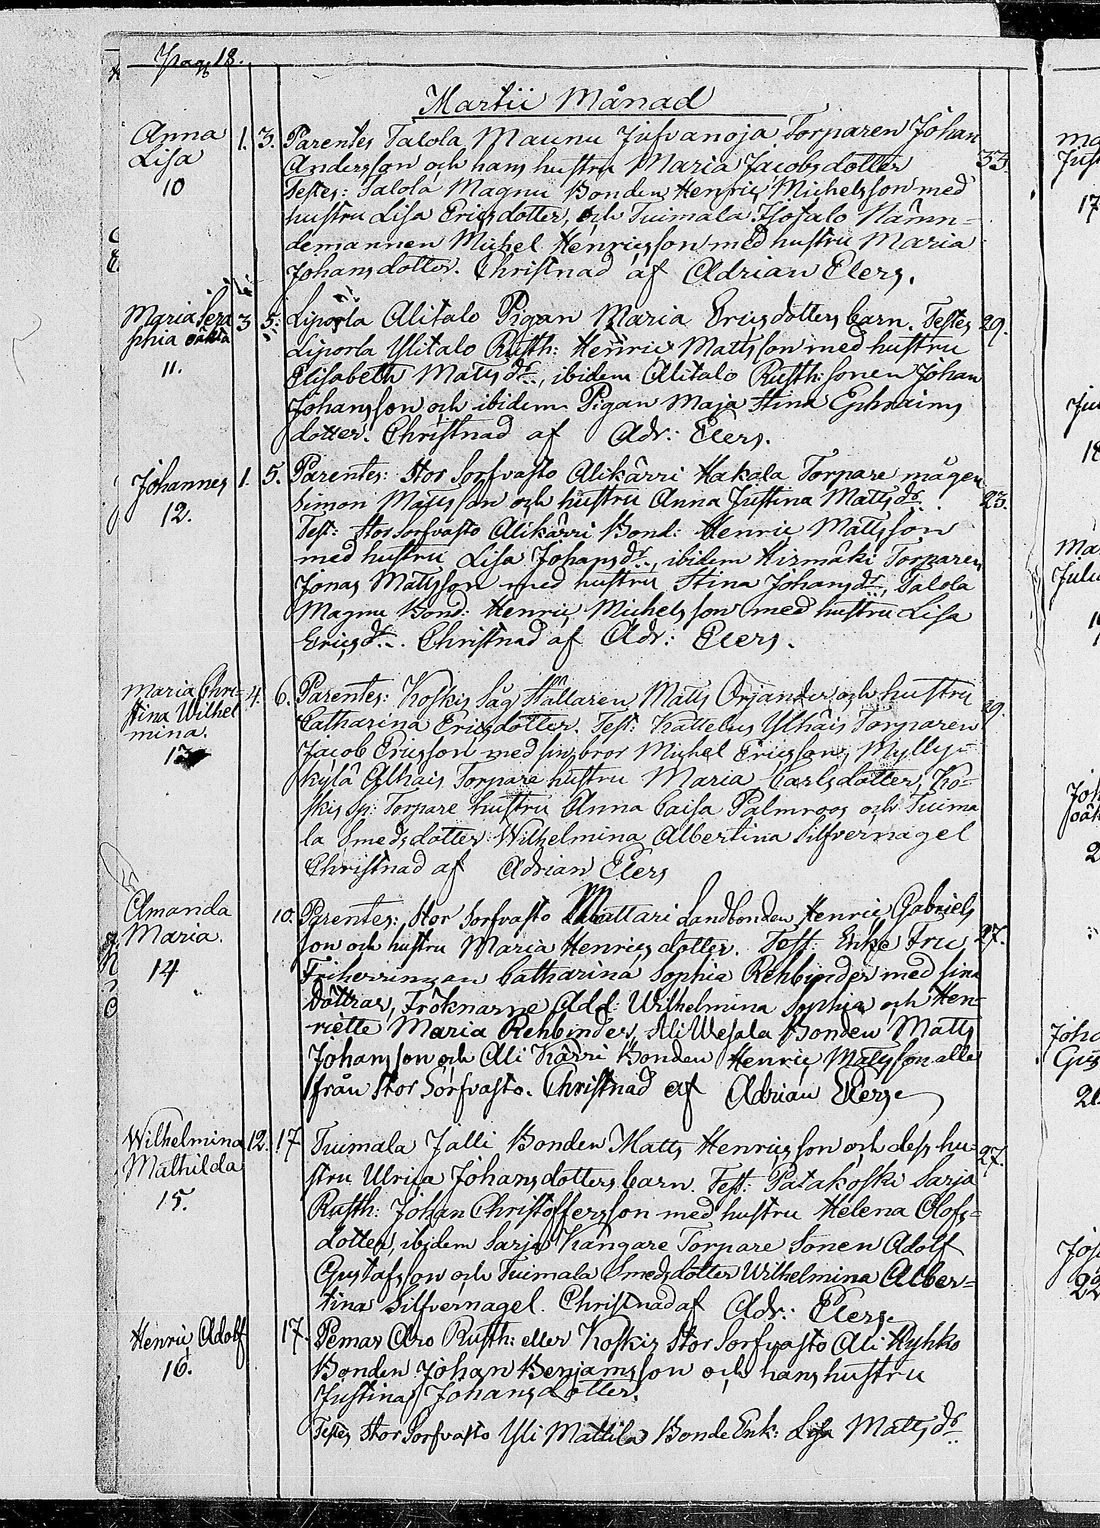 Pag 18.
Martii Månad
Anna 1. 3. Parentes Talola Maunu Jufvanoja Torparen Johan
Lisa Andersson och hans hustru Maria Jacobsdotter 33.
10 Testes: Talola Magnu Bonden Henric Michelsson med
hustru Lisa Ericsdotter, och Tuimala Isotalo Nämn-
demannen Michel Henricsson med hustru Maria
Johansdotter. Christnad af Adrian Elers.
Maria Sera 3 5. Liporla Alitalo Pigan Maria Ericsdotters barn. Testes 29.
phia oäkta Liporla Ylitalo Rusth: Henric Mattsson med hustru
11. Elisabeth Mattsdr., ibidem Alitalo Rusth: Sonen Johan
Johansson och ibidem Pigan Maja Stina Ephraims
dotter. Christnad af Adr: Elers.
Johannes 1. 5. Parentes: Stor Sorfvasto Alikärri Hakala Torpare mågen
12. Simon Mattsson och hustru Anna Justina Mattsdr. 23.
Test: Stor Sorfvasto Alikärri Bond: Henric Mattsson
med hustru Lisa Johansdr., ibidem Hirmäki Torparen
Jonas Mattsson med hustru Stina Johansdr., Talola
Magnu Bond: Henric Michelsson med hustru Lisa
Ericsdr. Christnad af Adr: Elers.
Maria Chri- 4. 6. Parentes: Koskis Såg Ställaren Matts Orjander och hustru
stina Wilhel Catharina Ericsdotter. Test: Kattelus Ylhäis Torparen 39.
mina. Jacob Ericsson med sin bror Michel Ericsson, Mylly-
13 kylä Alhais Torpare hustru Maria Carlsdotter, Ko-
skis Sp: Torpare hustru Anna Caisa Palmroos och Tuima
la Smedsdotter Wilhelmina Albertina Silfvernagel
Christnad af Adrian Elers
Amanda 10. Parentes: Stor Sorfvasto Muttari Landbonden Henric Gabriels
Maria. son och hustru Maria Henricsdotter. Test: Enke Fru 27.
14 Friherrinnan Catharina Sophia Rehbinder med sina
Döttrar, Fröknarne Add: Wilhelmina Sophia och Hen-
riette Maria Rehbinder, Ali Wesala Bonden Matts
Johansson och Ali Kärri Bonden Henric Mattsson alle
från Stor Sorfvasto. Christnad af Adrian Elers
Wilhelmina 12. 17 Tuimala Jalli Bonden Matts Henricsson och dess hu-
Mathilda stru Ulrica Johansdotters barn. Test: Patakoski Sarja 27.
15. Rusth: Johan Christoffersson med hustru Helena Olofs-
dotter, ibidem Sarja Kangare Torpare Sonen Adolf
Gustafsson och Tuimala Smedsdotter Wilhelmina Alber-
tina Silfvernagel. Christnad af Adr: Elers
Henric Adolf 17. Pemar Aro Rusth: eller Koskis Stor Sorfvasto Ali Hyhkö
16. Bonden Johan Benjamsson och hans hustru
Justina Johansdotter.
Testes Stor Sorfvasto Yli Mattila Bonde Enk: Lisa Mattsdr.